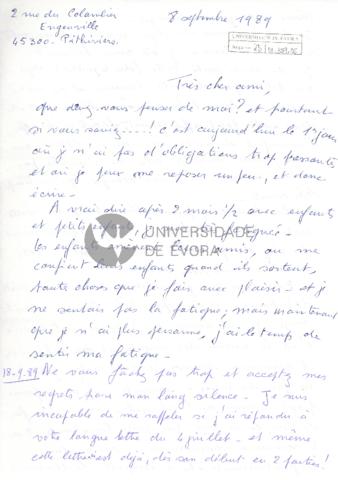 2 rue du Colombier
Engenville
45300 - Pithiviers.
8 septembre 1989
UNIVERSIDADE DE ÉVORA
Très cher ami,
que devez vous penser de moi? et pourtant
si vous saviez....! c'est aujourd'hui le 1er jour
où je n'ai pas d'obligations trop pressantes
et où je peux me reposer un peu, et donc
écrire -
A vrai dire après 2 mois 1/2 avec enfants
et petits
UNIVERSIDADE
DE ÉVORA
les enfants amis, ou me
confient leurs enfants quand ils sortent,
toute choses que je fais avec plaisir - et je
ne sentais pas la fatigue, mais maintenant
que je n'ai plus personne, j'ai le temps de
sentir ma fatigue -
18-9-89 Ne vous fachez pas trop et acceptez mes
regrets pour mon long silence - Je suis
incapable de me rappeler si j'ai répondu à
votre longue lettre du 4 juillet - et même
cette lettre est déjà, dès son début en 2 parties!